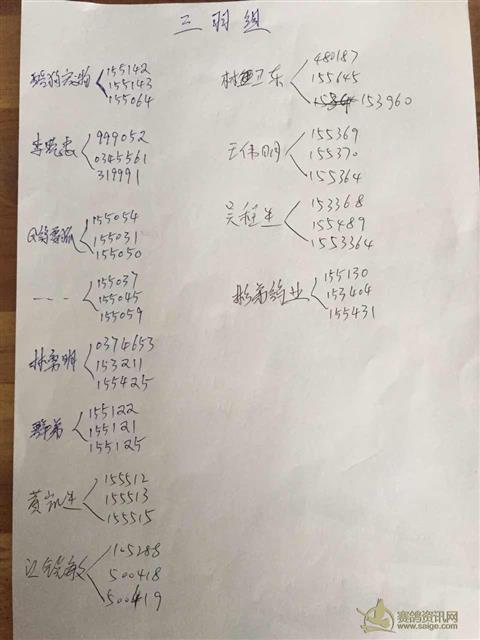 三羽组
155142
155143
155064
李
999052
0345561
319991
155054
155031
155050
一一
155037
155045
155059
林勇明
0374653
153211
155425
群弟
155122
155121
155125
黄凯生
155512
155513
155515
江
105288
500418
500419
林建卫东
480187
155645
153960
王伟明
155369
155370
155364
吴程生
153368
155489
1553364
彬弟鸽业
155130
153404
155431
赛鸽资讯网
www.saige.com